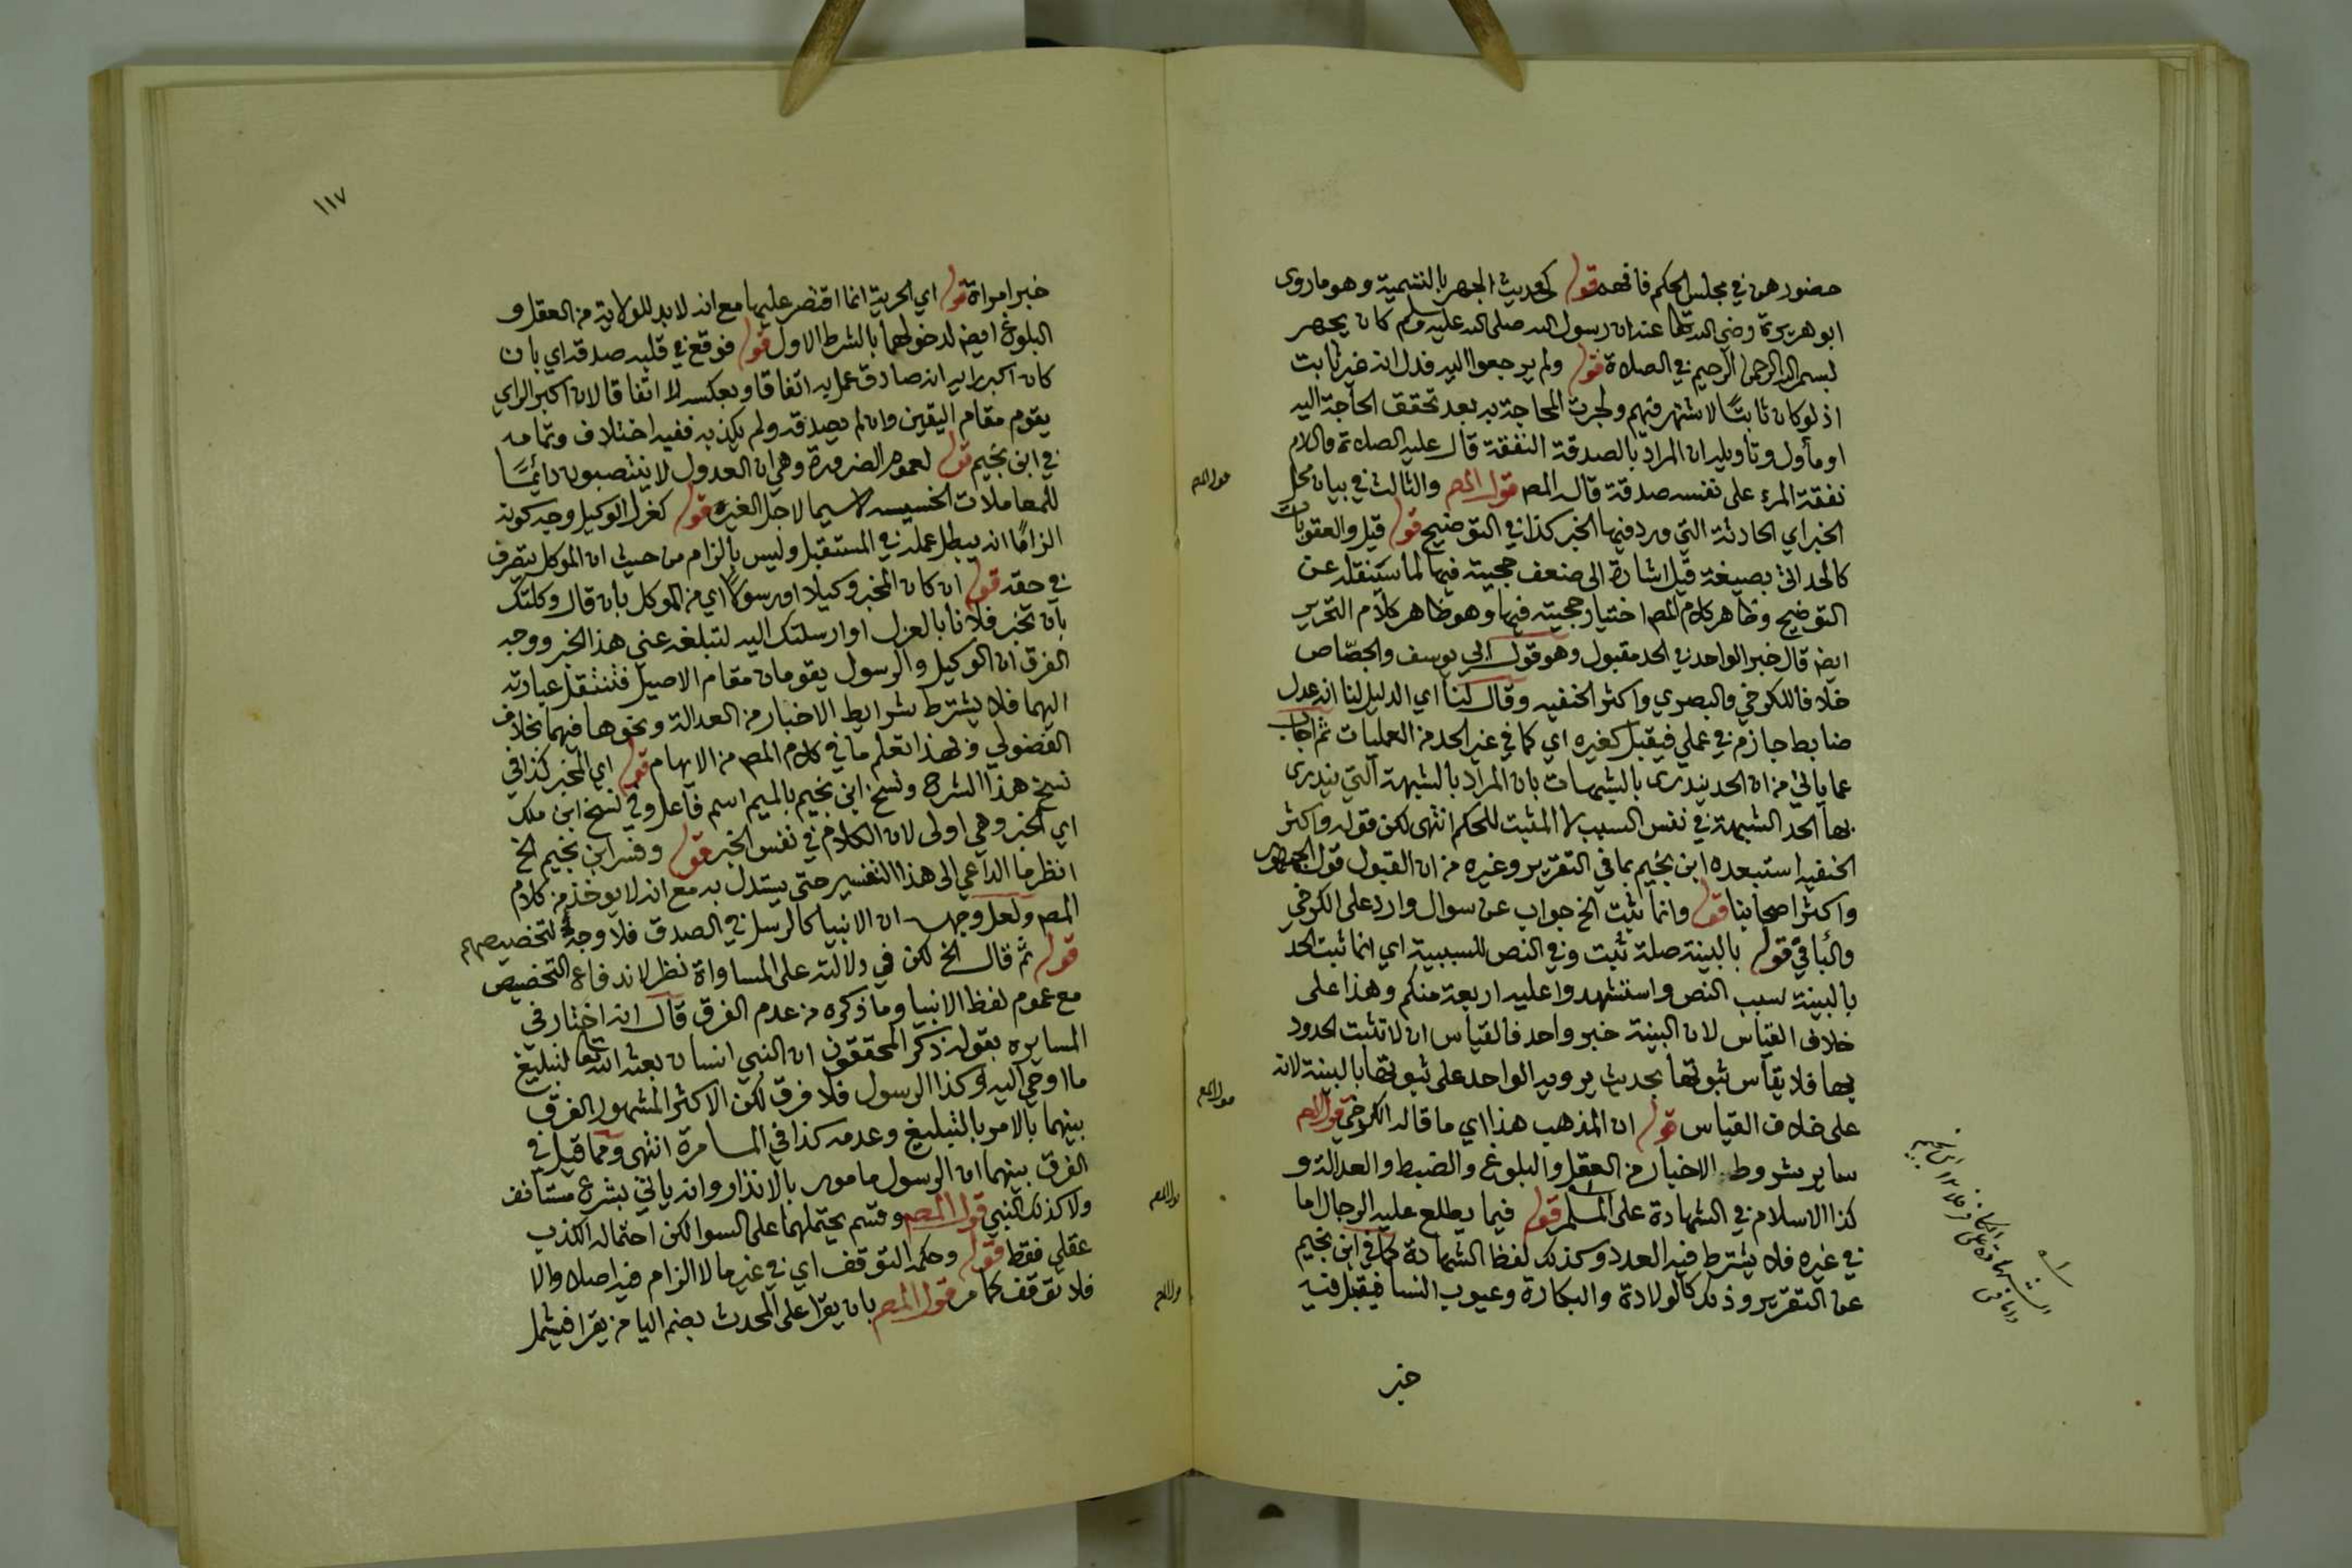 حضورهن في مجلس الحكم فافهم قوله كحديث الجهر بالتسمية وهو ما روى
ابو هريرة رضي الله تعالى عنه ان رسول الله صلى الله عليه وسلم كان يجهر
بسم الله الرحمن الرحيم في الصلاة قوله ولم يرجعوا اليه فدل انه غير ثابت
اذ لو كان ثابتًا لاشتهر فيهم ولجرت المحاجة به بعد تحقق الحاجة اليه
او مأول وتأويله ان المراد بالصدقة النفقة قال عليه الصلاة والسلام
نفقة المرء على نفسه صدقة قال المص قول المص والثالث في بيان محل
الخبر اي الحادثة التي ورد فيها الخبر كذا في التوضيح قوله قيل والعقوبات
كالحد اتى بصيغة قيل اشارة الى ضعف حجيته فيها لما سينقله عن
التوضيح وظاهر كلام المص اختيار حجيته فيها وهو ظاهر كلام التحرير
ايضا قال خبر الواحد في الحد مقبول وهو قول ابي يوسف والجصّاص
خلافا للكرخي والبصري واكثر الحنفيه وقال لنا اي الدليل لنا انه عدل
ضابط جازم في عملي فيقبل كغيره اي كما في غير الحد من العمليات ثم اجاب
عما ياتي من ان الحد يندرى بالشبهات بان المراد بالشبهة التي يندرى
بها الحد الشبهة في نفس السبب لا المثبت للحكم انتهى لكن قوله واكثر
الحنفيه استبعده ابن نجيم بما في التقرير وغيره من ان القبول قول الجمهور
واكثر اصحابنا قوله وانما يثبت الخ جواب عن سوال وارد على الكرخي
والباقي قوله بالبينة صلة ثبت وفي النص للسببية اي انما ثبت الحد
بالبينة بسبب النص واستشهدوا عليه اربعة منكم وهذا على
خلاف القياس لان البينة خبر واحد فالقياس ان لا تثبت الحدود
بها فلا يقاس ثبوتها بحديث يرويه الواحد على ثبوتها بالبينة لانه
على خلاف القياس قوله ان المذهب هذا اي ما قاله الكرخي قول المص
ساير شروط الاخبار من العقل والبلوغ والضبط والعدالة و
كذا الاسلام في الشهادة على المسلم قوله فيما يطلع عليه الرجال اما
في غيره فلا يشترط فيه العدد وكذلك لفظ الشهادة كما في ابن نجيم
عن التقرير وذلك كالولادة والبكارة وعيوب النسا فيقبل فيه
خبر
١١٧
خبر امراة قوله اي الحرية انما اقتصر عليها مع انه لا بد للولاية من العقل و
البلوغ ايضا لدخولهما بالشرط الاول قوله فوقع في قلبه صدقه اي بان
كان اكبر رايه انه صادق عمل به اتفاقا وبعكسه لا اتفاقا لان اكبر الراي
يقوم مقام اليقين وان لم يصدقه ولم يكذبه ففيه اختلاف وتمامه
في ابن نجيم قوله لعموم الضرورة وهي ان العدول لا ينتصبون دائمًا
للمعاملات الخسيسه لا سيما لاجل الغير قوله كعزل الوكيل وجه كونه
الزامًا انه يبطل عمله في المستقبل وليس بالزام من حيث ان الموكل يتصرف
في حقه قوله ان كان المخبر وكيلا او رسولًا اي من الموكل بان قال وكلتك
بان تخبر فلانا بالعزل او ارسلتك اليه لتبلغه عني هذا الخبر ووجه
الفرق ان الوكيل والرسول يقومان مقام الاصيل فتنتقل عبارته
اليهما فلا يشترط شرايط الاخبار من العدالة ونحوها فيهما بخلاف
الفضولي وبهذا تعلم ما في كلام المص من الابهام قوله اي المخبر كذا في
نسخ هذا الشرح ونسخ ابن نجيم بالميم اسم فاعل وفي نسخ ابن ملك
اي الخبر وهي اولى لان الكلام في نفس الخبر قوله وفسر ابن نجيم الخ
انظر ما الداعي الى هذا التفسير حتى يستدل به مع انه لا يوخذ من كلام
المص ولعل وجهه ان الانبيا كالرسل في الصدق فلا وجه لتخصيصهم
قوله ثم قال الخ لكن في دلالته على المساواة نظر لاندفاع التخصيص
مع عموم لفظ الانبيا وما ذكره من عدم الفرق قال انه اختار في
المسايره بقوله ذكر المحققون ان النبي انسان بعثه الله تعالى لتبليغ
ما اوحي اليه وكذا الرسول فلا فرق لكن الاكثر المشهور الفرق
بينهما بالامر بالتبليغ وعدمه كذا في المسامرة انتهى ومما قيل في
الفرق بينهما ان الرسول مامور بالانذار وانه ياتي بشرع مستانف
ولا كذلك النبي قول المص وقسم يحتملهما على السوا لكن احتماله الكذب
عقلي فقط قوله وحكمه التوقف اي في غير ما لا الزام فيه اصلا والا
فلا توقف كما مر قول المص بان يقرا على المحدث بضم اليا من يقرا فيشمل